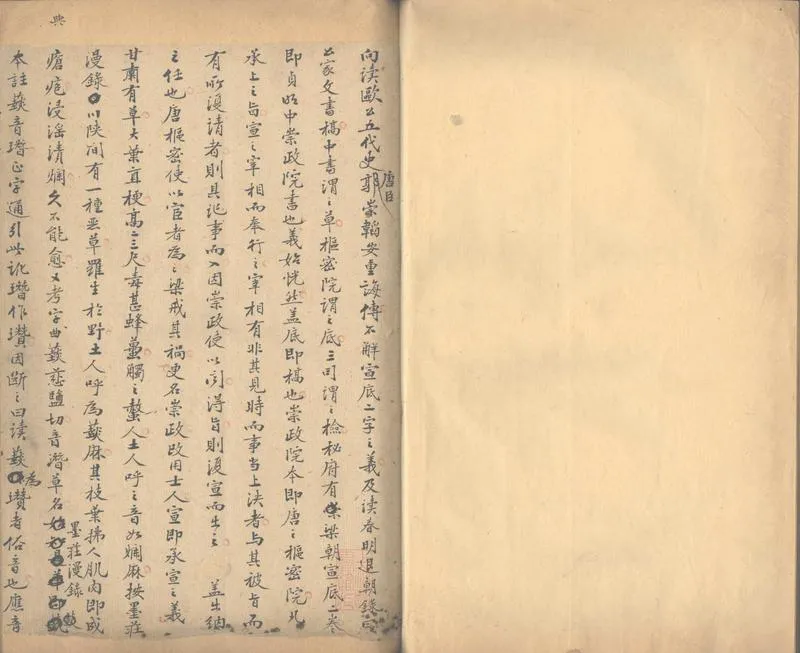 向读歐公五代史唐臣郭崇韜安重誨傳不觧宣底二字之義及读春明退朝錄宣
公家文書稿中書謂之草樞密院謂之底三司謂之檢秘府有梁朝宣底二卷
即貞明中崇政院書也義始恍然盖底即稿也崇政院本即唐之樞密院凡
承上之旨宣之宰相而奉行之宰相有非其見時而事当上决者与其被旨而
有所復请者則具記事而入因崇政使以聞得旨則復宣而出之 盖出纳
之任也唐樞密使以宦者為之梁戒其禍更名崇政改用士人宣即承宣之義
甘肅有草大葉直梗高二三尺毒甚蜂蠆觸之螫人土人呼之音如燗麻按墨莊
漫錄川陕間有一種惡草羅生於野土人呼為䕭麻其枝葉拂人肌肉即成
瘡疱浸淫潰爛久不能愈又考字典䕭慈鹽切音潛草名墨莊漫録
本註䕭音瓚正字通引此訛瓚作瓚因断之曰读䕭為瓚者俗音也應音
典